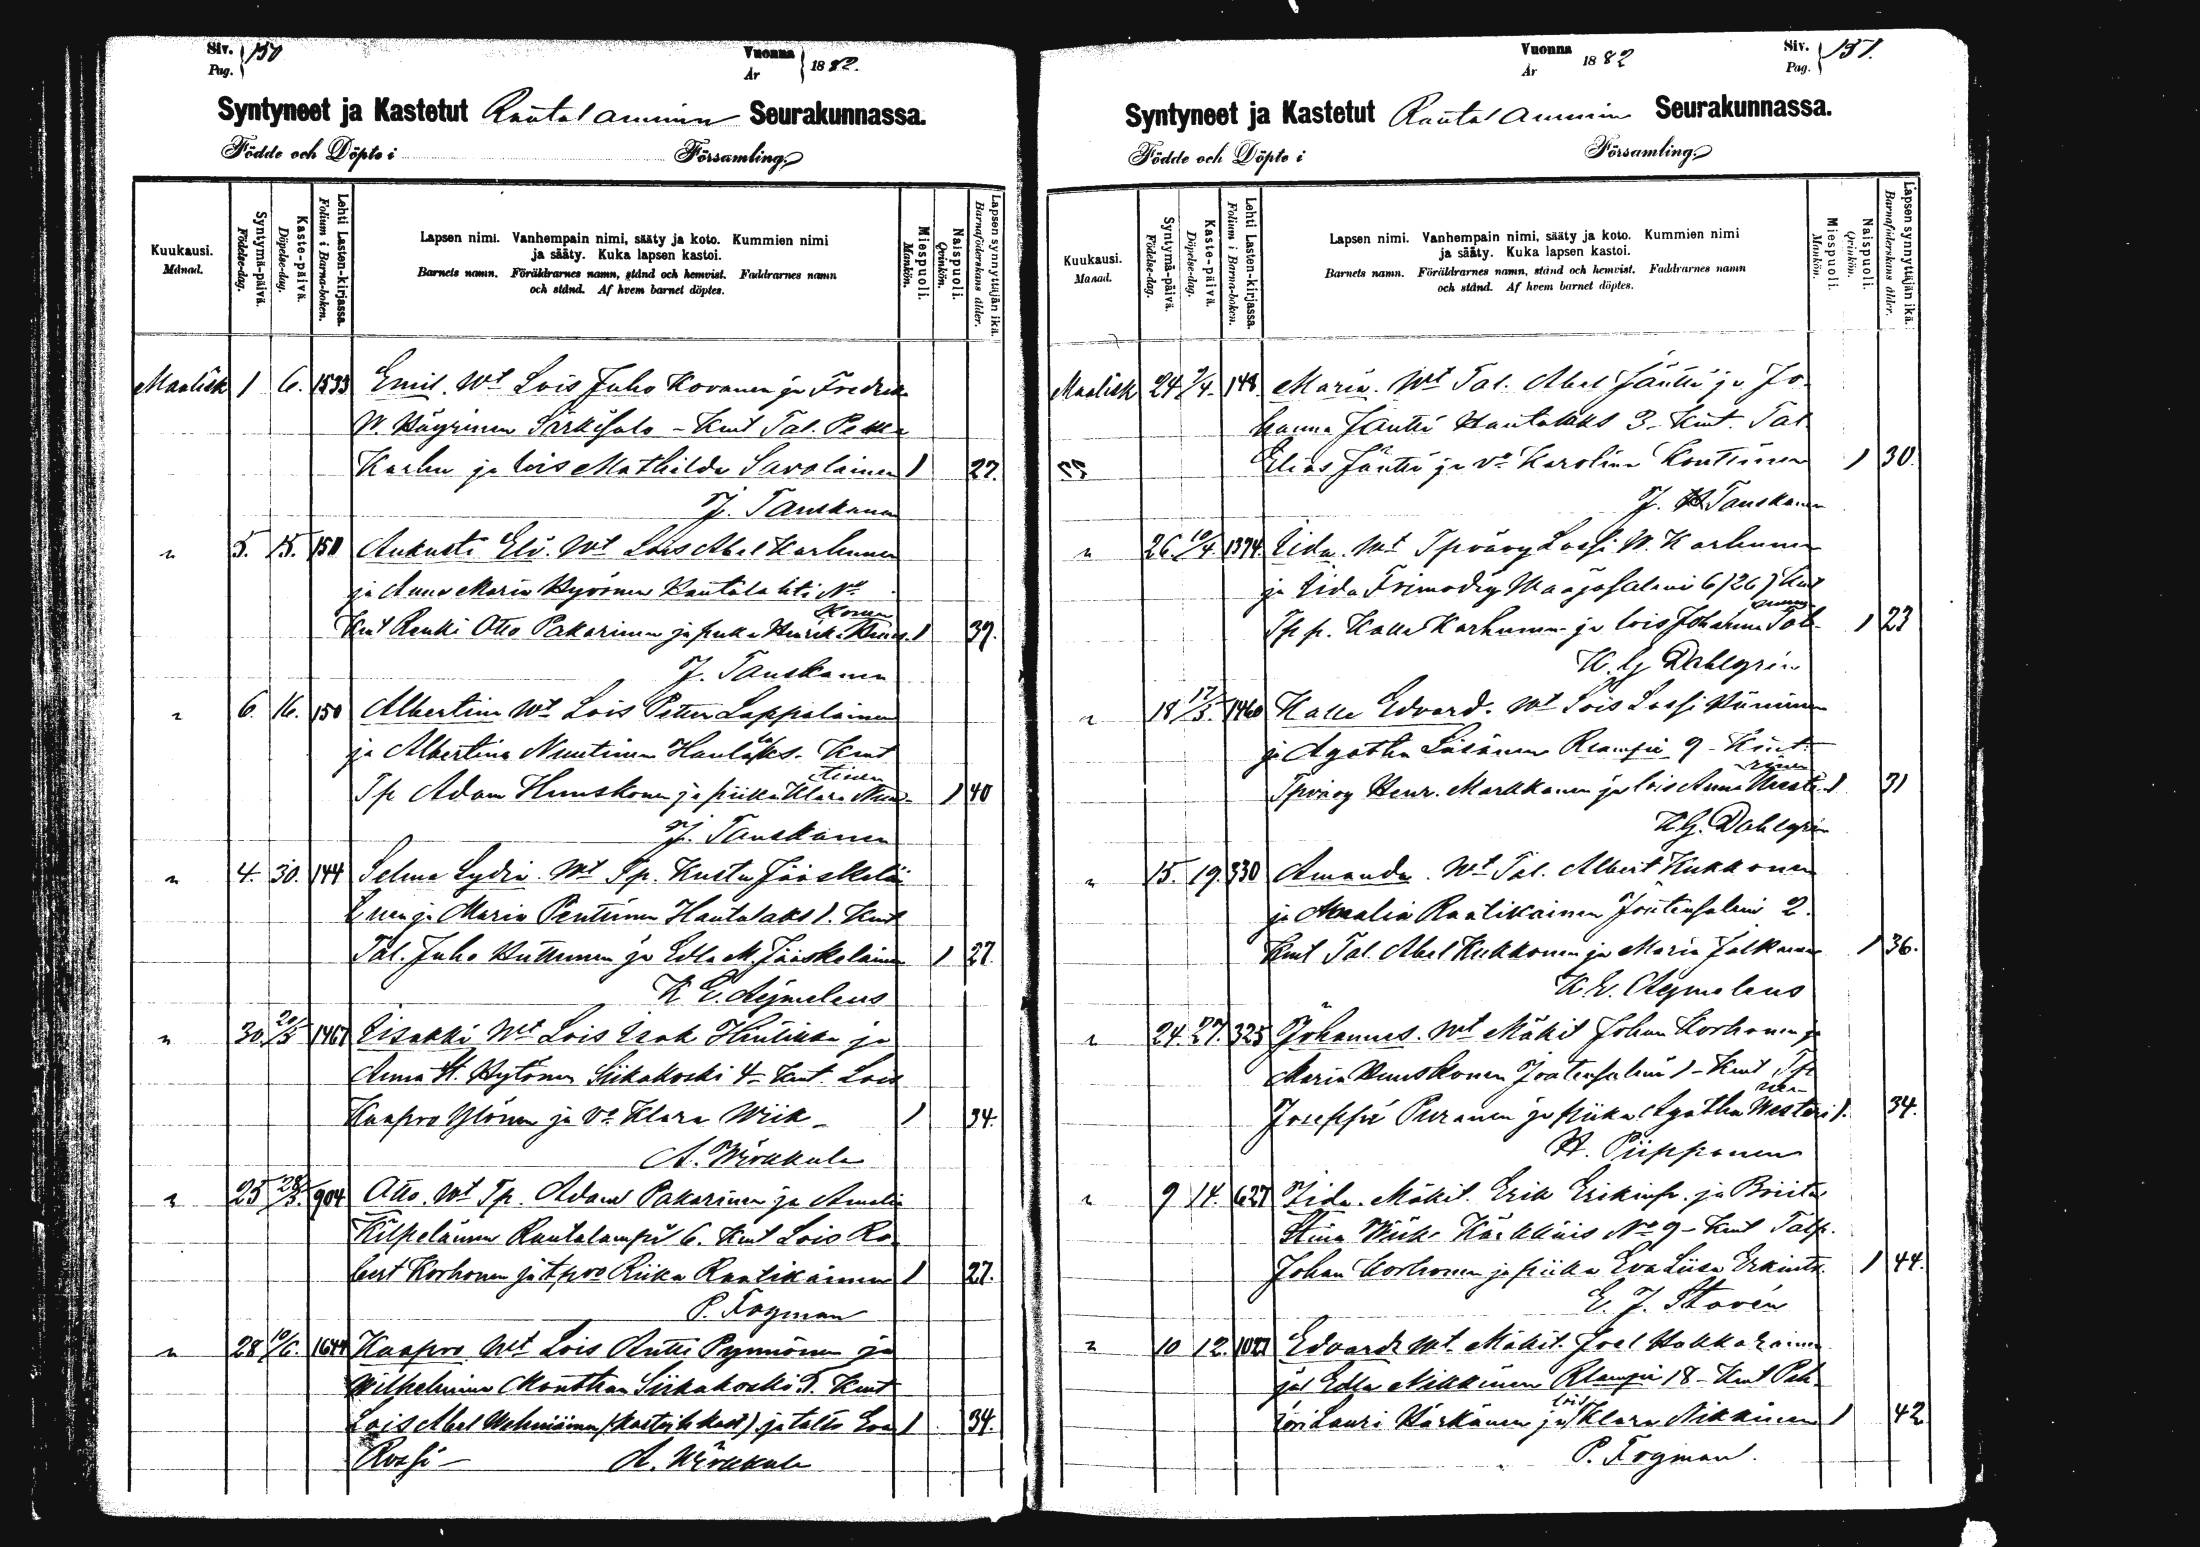 Siv. Pag. 150
Vuonna År 1882.
Syntyneet ja Kastetut Rautalammin Seurakunnassa.
Födde och Döpte i Församling.
Kuukausi. Månad.
Syntymä-päivä. Födelse-dag.
Kaste-päivä. Döpelse-dag.
Lehti Lasten-kirjassa. Folium i Barna-boken.
Lapsen nimi. Vanhempain nimi, sääty ja koto. Kummien nimi
ja sääty. Kuka lapsen kastoi.
Barnets namn. Föräldrarnes namn, stånd och hemvist. Faddrarnes namn
och stånd. Af hvem barnet döptes.
Miespuoli. Mankön.
Naispuoli. Qvinkön.
Lapsen synnyttäjän ikä. Barnaföderskans ålder.
Maalisk 1 6. 1533 Emil. Wt Lois Juho Kovanen ja Fredrika
W. Häyrinen Särkisalo - Kmt Tal. Pekka
Karhu ja lois Mathilda Savolainen 1 27.
J. Tanskanen
" 5. 15. 151 Aukusti Eli. Wt Lois Abel Karhunen
ja Anna Maria Hyvönen Rautalahti No
Kmt Renki Otto Pakarinen ja piika Henrika Huuskonen 1 39.
J. Tanskanen
" 6. 16. 150 Albertina Wt Lois Petter Lappalainen
ja Albertina Nuutinen Hautalaks. Kmt
Tp Adam Huuskonen ja piika Klara Nuutinen 1 40
J. Tanskanen
" 4. 30. 144 Selma Lydia. Wt Tp. Kustu Jääskeläi
nen ja Maria Penttinen Hautalaks 1. Kmt
Tal. Juho Huttunen ja Edla M. Jääskeläinen 1 27.
K E. Aejmelaus
" 30 20/5 1467 Iisakki Wt Lois Isak Hintikka ja
Anna St. Hytönen Siikakoski 4 - Kmt. Lois
Kaapro Ylönen ja vo Klara Wiik - 1 34.
A. Wirkkula
" 25 28/5. 904 Otto. Wt Tp. Adam Pakarinen ja Amalia
Kilpeläinen Rautalampi 6. Kmt Lois Ro-
bert Korhonen ja tpvo Riika Raatikainen 1 27.
P. Fogman
" 28 10/6. 1644 Kaapro Wt Lois Antti Pynnönen ja
Wilhelmina Manthan Siikakoski 5. Kmt
Lois Abel Wehniäinen (kastoi h kast) ja talts Eva 1 34.
Rossi - A. Wirkkula
Vuonna År 1882
Siv. Pag. 151.
Syntyneet ja Kastetut Rautalammin Seurakunnassa.
Födde och Döpte i Församling.
Kuukausi. Månad.
Syntymä-päivä. Födelse-dag.
Kaste-päivä. Döpelse-dag.
Lehti Lasten-kirjassa. Folium i Barna-boken.
Lapsen nimi. Vanhempain nimi, sääty ja koto. Kummien nimi
ja sääty. Kuka lapsen kastoi.
Barnets namn. Föräldrarnes namn, stånd och hemvist. Faddrarnes namn
och stånd. Af hvem barnet döptes.
Miespuoli. Mankön.
Naispuoli. Qvinkön.
Lapsen synnyttäjän ikä. Barnaföderskans ålder.
Maalisk 24 9/4. 148 Maria. Wt Tal. Abel Jäntti ja Jo-
hanna Jäntti Hautalaks 3 - Kmt. Tal.
Elias Jäntti ja vo Karolina Konttinen 1 30.
J. Tanskanen
" 26. 10/4. 1374. Iida. Wt Tpvävy Lassi W. Karhunen
ja Iida Frimodig Waajasalmi 6/26) Kmt
Tp p. Kalle Karhunen ja lois Johanna Tol 1 23
K. G Dahlgrén
" 18 17/5. 1460 Kalle Edvard. Wt Lois Lassi Hänninen
ja Agatha Läsänen Rlampi 9 - Kmt.
Tpvävy Henr. Markkanen ja lois Anna Westerinen 1 31
K G. Dahlgrén
" 15. 19. 330 Amanda. Wt Tal. Albert Kukkonen
ja Amalia Raatikainen Joutensalmi 2.
Kmt Tal. Abel Kukkonen ja Maria Jalkanen 1 36.
K. E. Aejmelaus
" 24. 27. 325 Johannes. Wt Mäkit Johan Korhonen ja
Maria Huuskonen Joutensalmi 1 - Kmt Tp
Joseppi Puranen ja piika Agatha Westerinen 1. 34.
H. Piipponen
" 9 14. 627 Iida. Mäkit. Erik Erikinp. ja Briita
Stina Wiik Kärkkäis No 9 - Kmt Talp.
Johan Korhonen ja piika Eva Liisa Erkintr. 1 44.
E. J. Stavén
" 10 12. 1027 Edvard Wt. Mäkit. Joel Hakkarainen
ja Edla Nikkinen Rlampi 18 - Kmt Pit.
Lauri Härkänen ja lois Klara Nikkinen 1 42
P. Fogman.